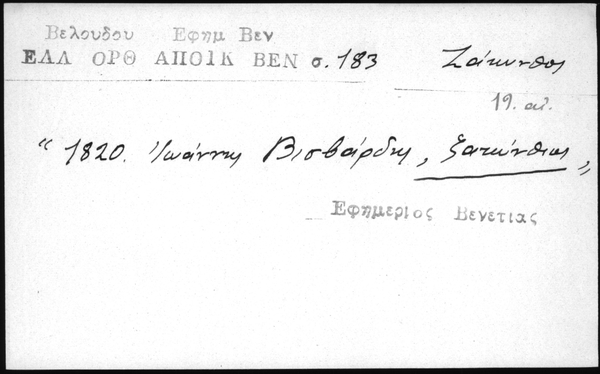 Βελουδου Εφημ Βεν
ΕΛΛ ΟΡΘ ΑΠΟΙΚ ΒΕΝ σ. 183 Ζάκυνθος
19. αἰ.
" 1820. Ἰωάννης Βισβάρδης, ζακύνθιος "
Εφημεριος Βενετιας